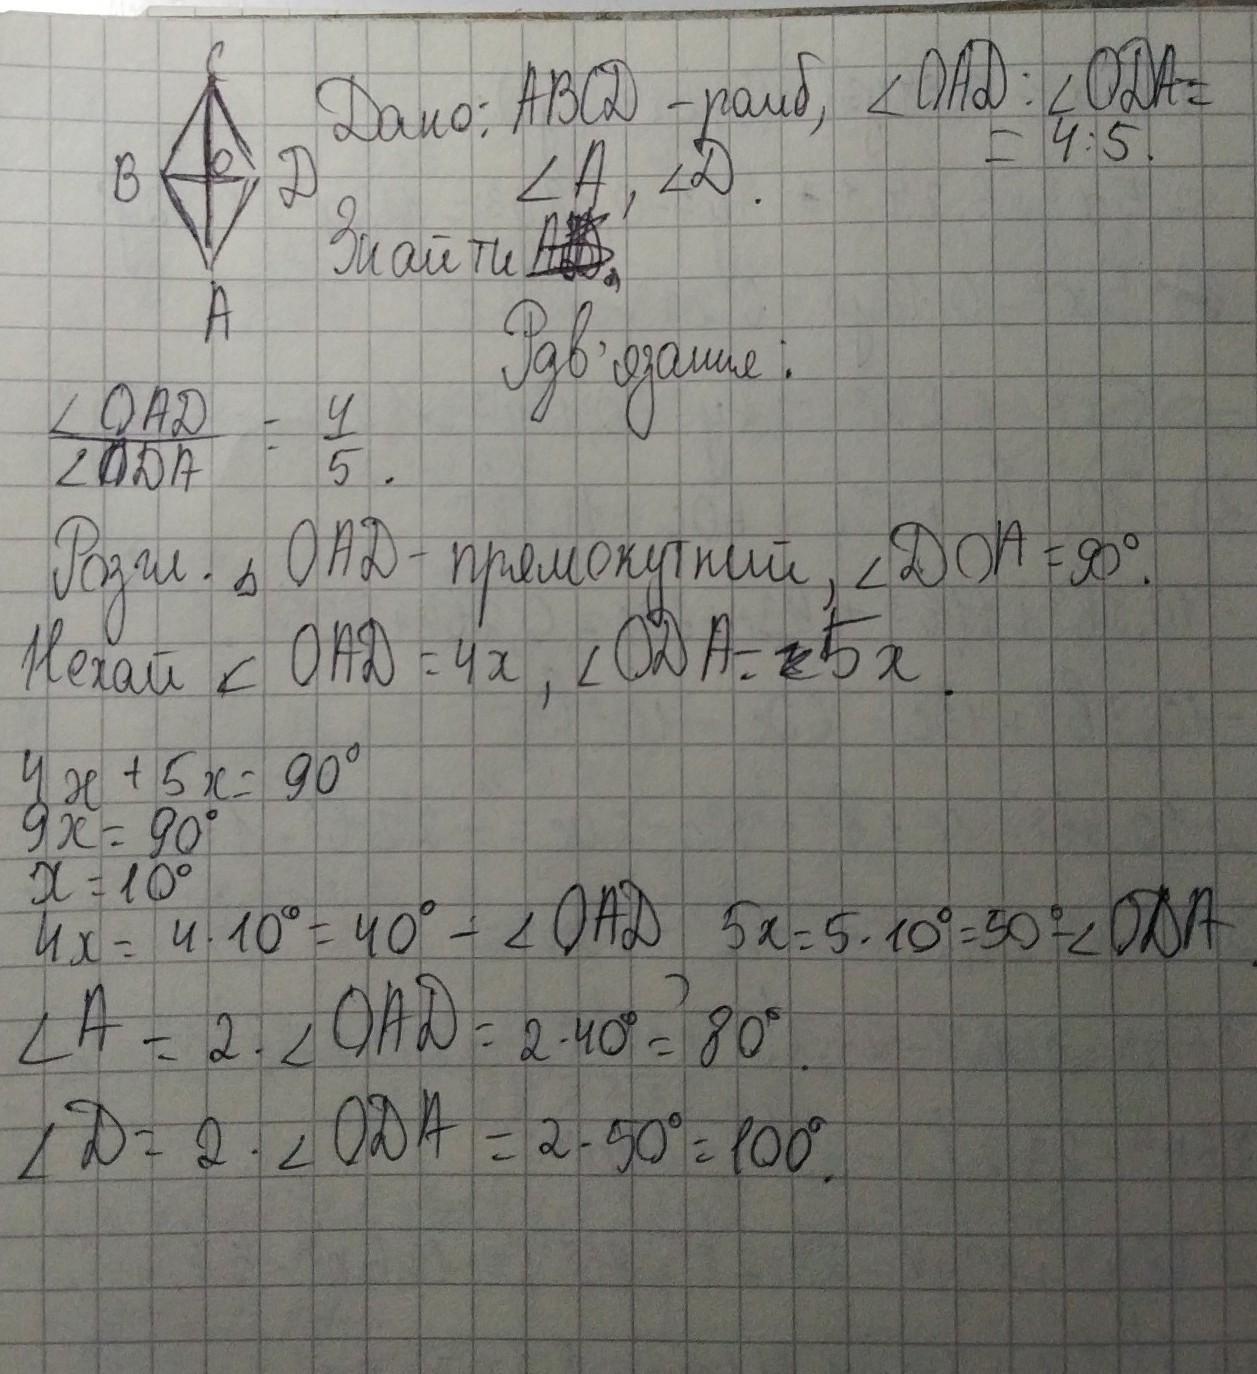 C
B O D
A
Дано: ABCD - ромб, ∠OAD : ∠ODA =
= 4:5.
∠A, ∠D.
Знайти
Розв'язання:
∠OAD / ∠ODA = 4 / 5.
Розгл. △ OAD - прямокутний, ∠DOA = 90°.
Нехай ∠ OAD = 4x, ∠ODA = 5x.
4x + 5x = 90°
9x = 90°
x = 10°
4x = 4 · 10° = 40° - ∠OAD 5x = 5 · 10° = 50° - ∠ODA.
∠A = 2 · ∠OAD = 2 · 40° = 80°.
∠D = 2 · ∠ODA = 2 · 50° = 100°.